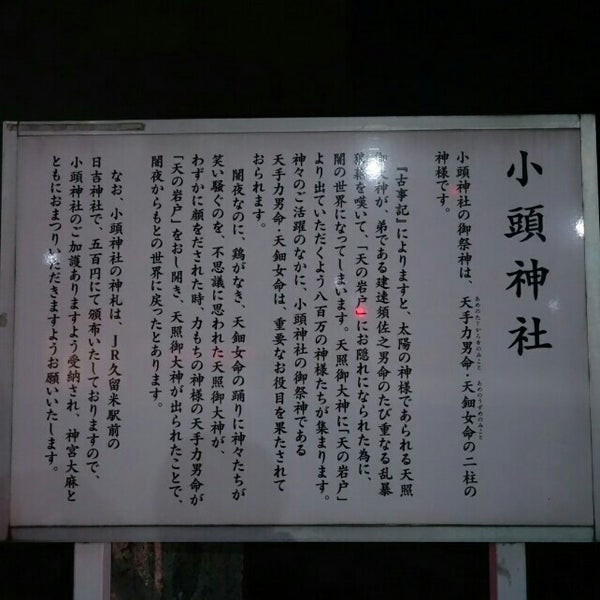 小頭神社
小頭神社の御祭神は、天手力男命・天鈿女命の二柱の
あめのたぢからをのみこと あめのうずめのみこと
神様です。
『古事記』によりますと、太陽の神様であられる天照
御大神が、弟である建速須佐之男命のたび重なる乱暴
狼藉を嘆いて、「天の岩戸」にお隠れになられた為に、
闇の世界になってしまいます。天照御大神に「天の岩戸」
より出ていただくよう八百万の神様たちが集まります。
神々のご活躍のなかに、小頭神社の御祭神である
天手力男命・天鈿女命は、重要なお役目を果たされて
おられます。
闇夜なのに、鶏がなき、天鈿女命の踊りに神々たちが
笑い騒ぐのを、不思議に思われた天照御大神が、
わずかに顔をだされた時、力もちの神様の天手力男命が
「天の岩戸」をおし開き、天照御大神が出られたことで、
闇夜からもとの世界に戻ったとあります。
なお、小頭神社の神札は、JR久留米駅前の
日吉神社で、五百円にて頒布いたしておりますので、
小頭神社のご加護ありますよう受納され、神宮大麻と
ともにおまつりいただきますようお願いいたします。